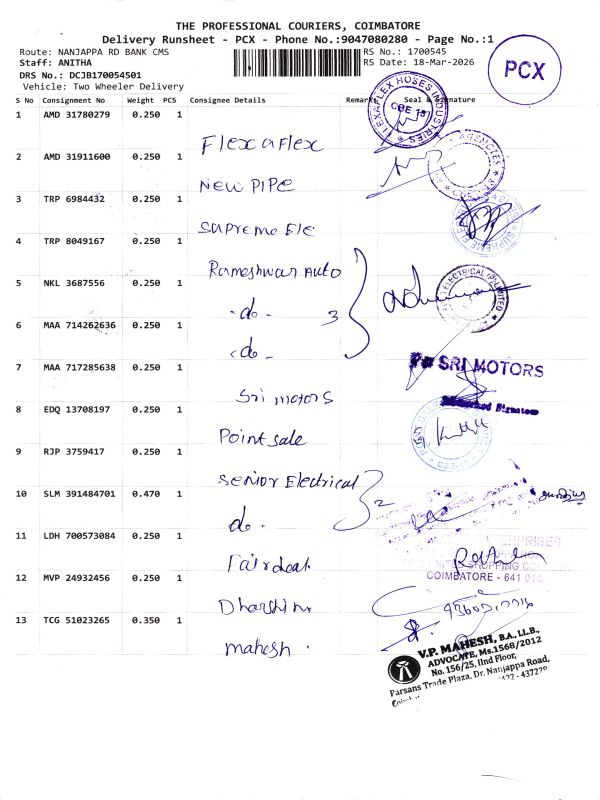 THE PROFESSIONAL COURIERS, COIMBATORE
Delivery Runsheet - PCX - Phone No.:9047080280 - Page No.:1
Route: NANJAPPA RD BANK CMS
RS No.: 1700545
Staff: ANITHA
RS Date: 18-Mar-2026
DRS No.: DCJB170054501
Vehicle: Two Wheeler Delivery
PCX
S No Consignment No Weight PCS Consignee Details Remarks Seal & Signature
1 AMD 31780279 0.250 1
Flexaflex
FLEXAFLEX HOSES INDUSTRIES
2 AMD 31911600 0.250 1
New PIPE
AGENCIES
3 TRP 6984432 0.250 1
Supreme Ele
4 TRP 8049167 0.250 1
Rameshwar Auto
5 NKL 3687556 0.250 1
-do- 3
6 MAA 714262636 0.250 1
-do-
7 MAA 717285638 0.250 1
Sri motors
SRI MOTORS
8 EDQ 13708197 0.250 1
Point sale
9 RJP 3759417 0.250 1
Senior Electrical
10 SLM 391484701 0.470 1
do. 2
11 LDH 700573084 0.250 1
Fairdeal
COIMBATORE - 641
12 MVP 24932456 0.250 1
Dharshini
13 TCG 51023265 0.350 1
mahesh .
V.P. MAHESH, B.A., LL.B.,
ADVOCATE, Ms.1568/2012
No. 156/25, IInd Floor,
Parsans Trade Plaza, Dr. Nanjappa Road,